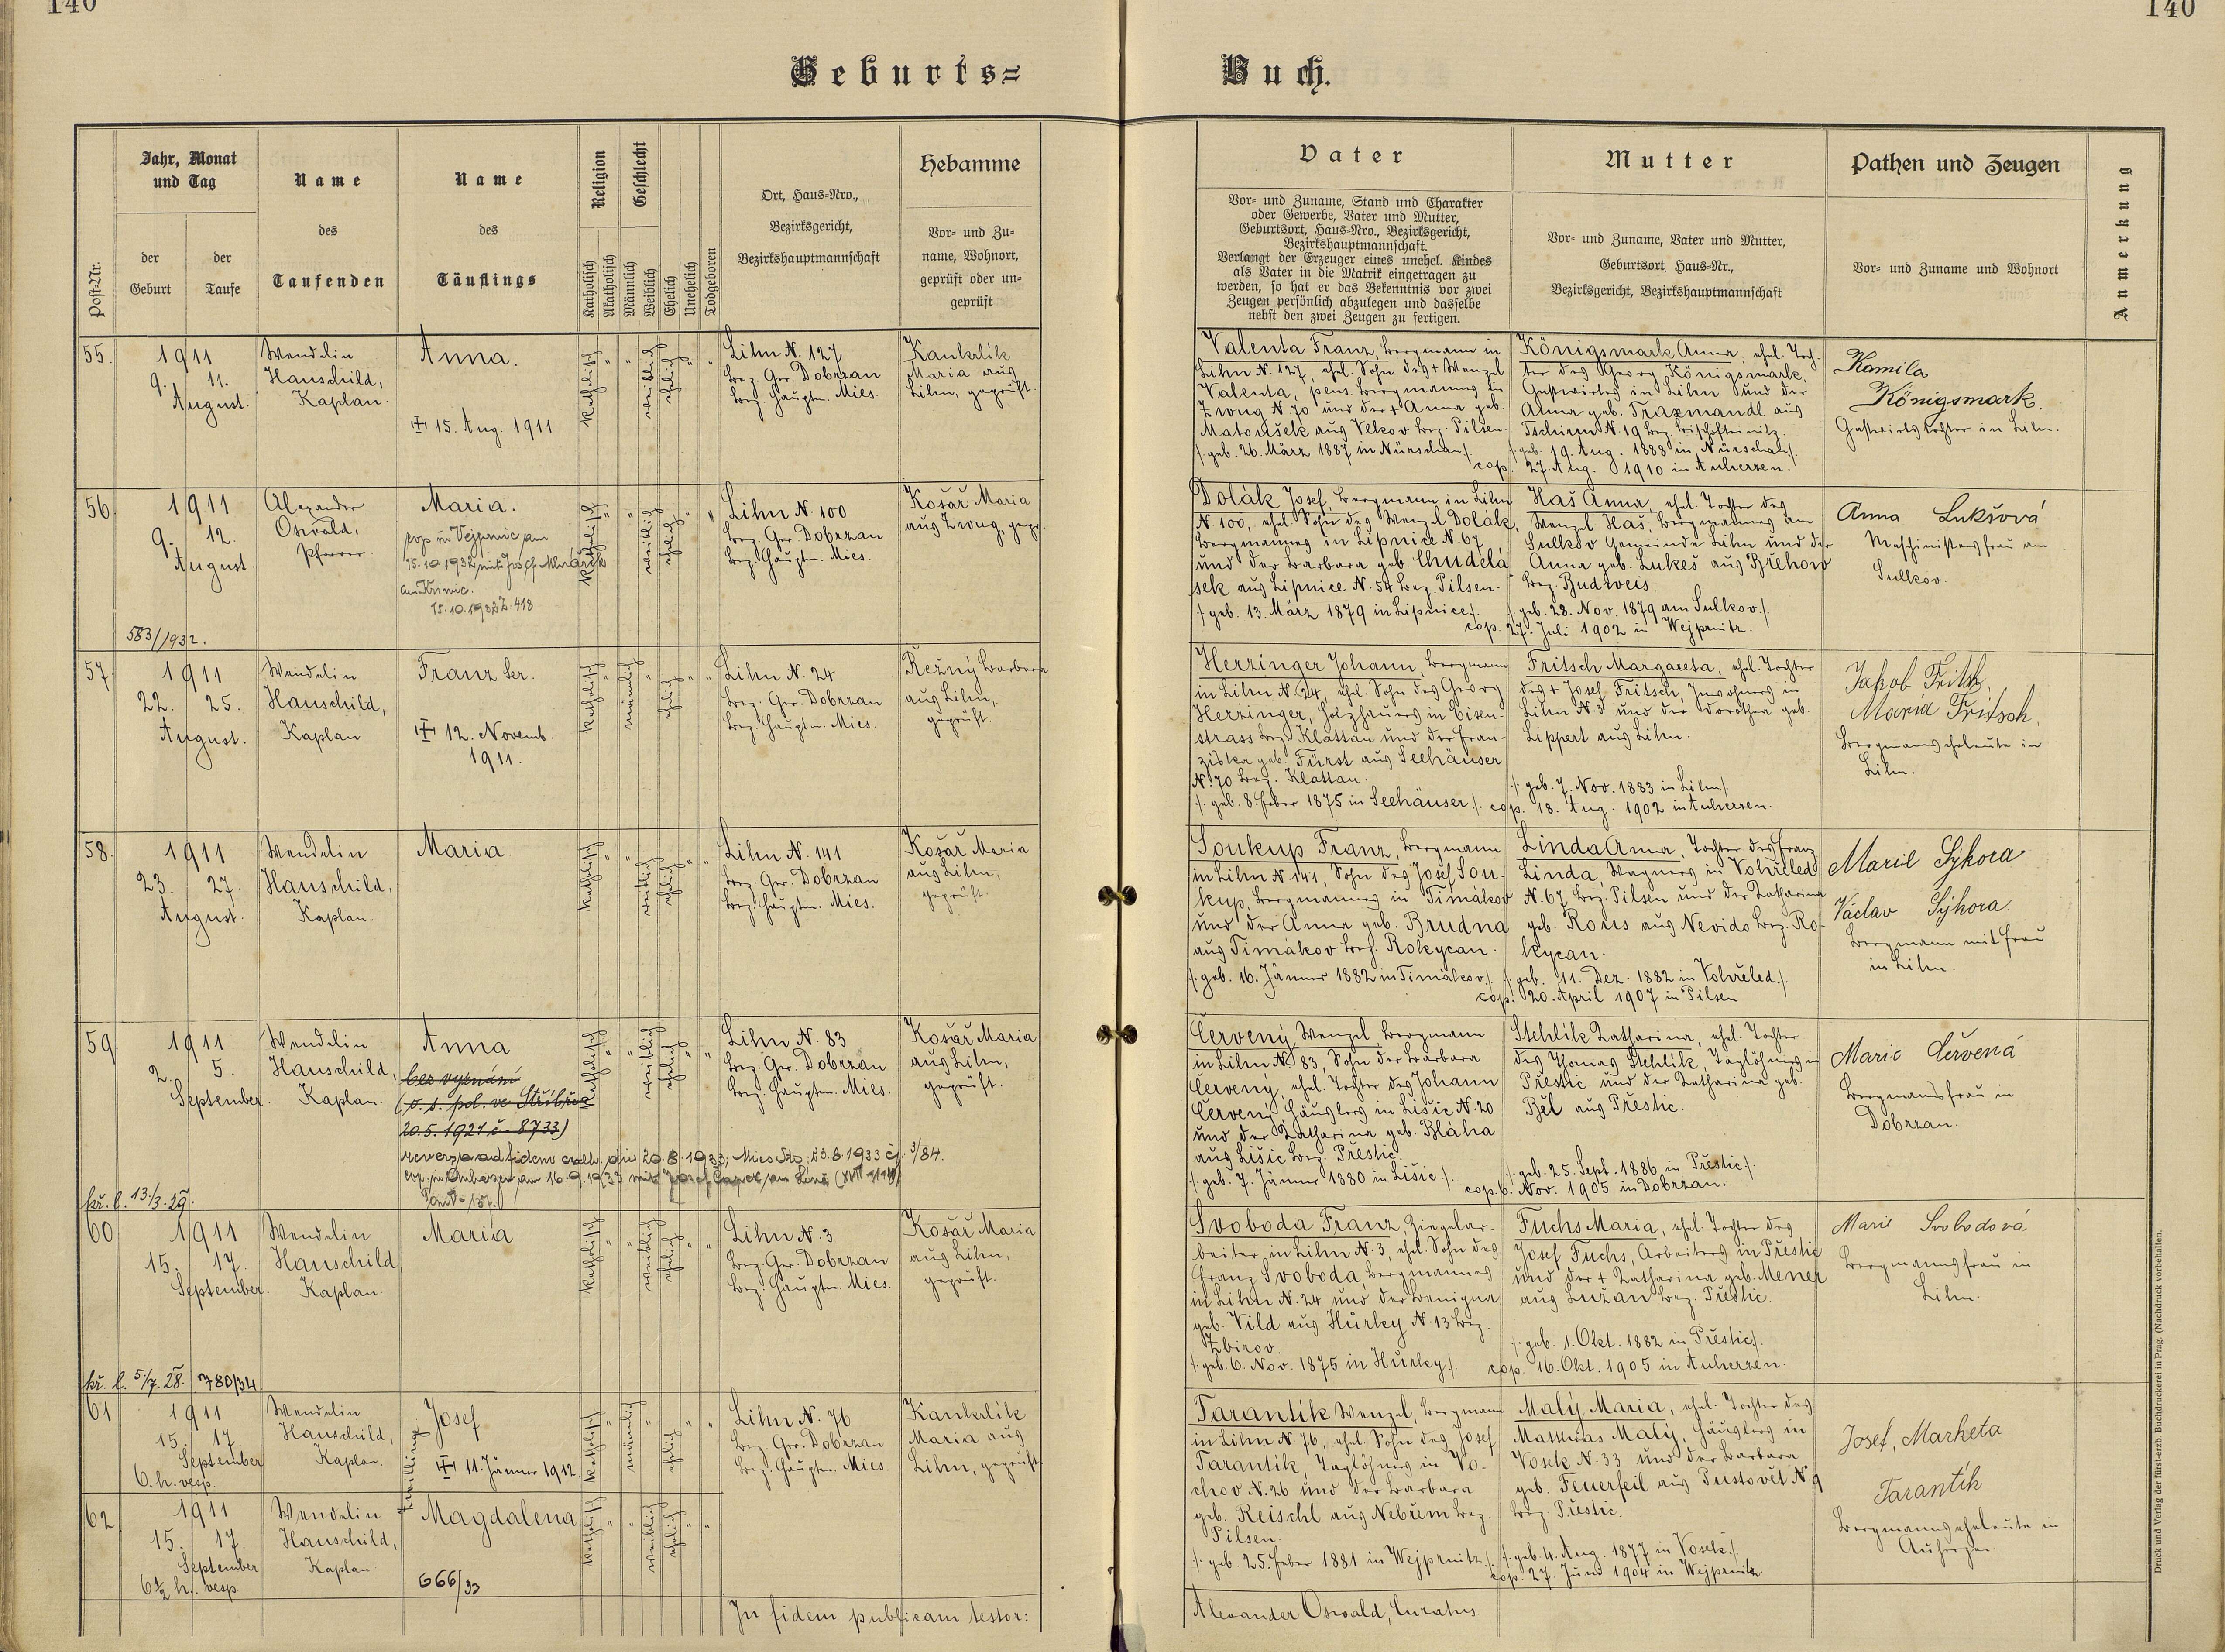 140
140
Geburts=
Buch.
Post-Nr.
Jahr, Monat
und Tag
der
Geburt
der
Taufe
Name
des
Taufenden
Name
des
Täuflings
Religion
Katholisch
Akatholisch
Geschlecht
Männlich
Weiblich
Ehelich
Unehelich
Todgeboren
Ort, Haus=Nro.,
Bezirksgericht,
Bezirkshauptmannschaft
Hebamme
Vor= und Zu=
name, Wohnort,
geprüft oder un=
geprüft
Vater
Vor= und Zuname, Stand und Charakter
oder Gewerbe, Vater und Mutter,
Geburtsort, Haus=Nro., Bezirksgericht,
Bezirkshauptmannschaft.
Verlangt der Erzeuger eines unehel. Kindes
als Vater in die Matrik eingetragen zu
werden, so hat er das Bekenntnis vor zwei
Zeugen persönlich abzulegen und dasselbe
nebst den zwei Zeugen zu fertigen.
Mutter
Vor= und Zuname, Vater und Mutter,
Geburtsort, Haus=Nr.,
Bezirksgericht, Bezirkshauptmannschaft
Pathen und Zeugen
Vor= und Zuname und Wohnort
Anmerkung
55.
1911
9. 11.
August.
Wendelin
Hauschild,
Kaplan.
Anna.
15. Aug. 1911
katholisch
weiblich
ehelich
Lihn N. 127
Bez. Ger. Dobrzan
Bez. Hauptm. Mies.
Kankrlík
Maria aus
Lihn, geprüft.
Valenta Franz, Bergmann in
Lihn N. 127, ehel. Sohn des + Wenzel
Valenta, pens. Bergmannes in
Zwug N. 70 und der + Anna geb.
Matoušek aus Vlkov Bez. Pilsen.
/. geb. 26. März 1887 in Nürschan /.
Königsmark Anna, ehel. Toch-
ter des Georg Königsmark,
Gastwirtes in Lihn und der
Anna geb. Traxmandl aus
Tschirm N. 19 Bez. Bischofteinitz.
/. geb. 19. Aug. 1888 in Nürschan /.
cop. 27. Aug. 1910 in Auherzen.
Kamila
Königsmark.
Gastwirtstochter in Lihn.
56.
1911
9. 12.
August.
583/1932.
Alexander
Oswald,
Pfarrer.
Maria.
cop in Vejprnic am
15.10.1932 mit Josef
aus Křimic.
15.10.1932 Z. 418
katholisch
weiblich
ehelich
Lihn N. 100
Bez. Ger. Dobrzan
Bez. Hauptm. Mies.
Košař Maria
aus Zwug, gepr.
Dolák Josef, Bergmann in Lihn
N. 100, ehel. Sohn des Wenzel Dolák,
Bergmannes in Lipnice N. 67
und der Barbara geb. Chudělá
sek aus Lipnice N. 54 Bez. Pilsen.
/. geb. 13. März 1879 in Lipnice /.
Haš Anna, ehel. Tochter des
Wenzel Haš, Bergmannes am
Sulkov Gemeinde Lihn und der
Anna geb. Lukeš aus Břehow
Bez. Budweis.
/. geb. 28. Nov. 1879 am Sulkov /.
cop. 27. Juli 1902 in Wejprnitz.
Anna Lukšová
Maschinistensfrau am
Sulkov.
57.
1911
22. 25.
August.
Wendelin
Hauschild,
Kaplan
Franz Ser.
12. Novemb.
1911.
katholisch
männlich
ehelich
Lihn N. 24
Bez. Ger. Dobrzan
Bez. Hauptm. Mies.
Řežný Barbara
aus Lihn,
geprüft.
Herzinger Johann, Bergmann
in Lihn N. 24, ehel. Sohn des Georg
Herzinger, Holzhauers in Eisen-
strass Bez. Klattau und der Fran-
ziska geb. Fürst aus Seehäuser
N. 70 Bez. Klattau.
/. geb. 8. Feber 1875 in Seehäuser /.
Fritsch Margareta, ehel. Tochter
des + Josef Fritsch, Inwohners in
Lihn N. 3 und der Dorothea geb.
Lippert aus Lihn.
/. geb. 7. Nov. 1883 in Lihn /.
cop. 18. Aug. 1902 in Auherzen.
Jakob Fritsch
Maria Fritsch,
Bergmannseheleute in
Lihn.
58.
1911
23. 27.
August.
Wendelin
Hauschild,
Kaplan.
Maria.
katholisch
weiblich
ehelich
Lihn N. 141
Bez. Ger. Dobrzan
Bez. Hauptm. Mies.
Košař Maria
aus Lihn,
geprüft.
Soukup Franz, Bergmann
in Lihn N. 141, Sohn des Josef Sou-
kup, Bergmannes in Timákov
und der Anna geb. Brudna
aus Timákov Bez. Rokycan.
/. geb. 16. Jänner 1882 in Timákov /.
Linda Anna, Tochter des Franz
Linda, Wagners in Vohřeled
N. 67 Bez. Pilsen und der Katharina
geb. Rous aus Nevido Bez. Ro-
kycan.
/. geb. 11. Dez. 1882 in Vohřeled /.
cop. 20. April 1907 in Pilsen
Marie Sýkora
Václav Sýkora.
Bergmann mit Frau
in Lihn.
59.
1911
2. 5.
September.
kř. l. 13./3. 39.
Wendelin
Hauschild,
Kaplan.
Anna
bez vyznání
(o. s. pol. ve Stříbře
20.5.1921 č. 8733)
reversa ad fidem cath. die 20.8.1933; Mies Sto. 23.8.1933 čj. 3/84.
cop. in Auherzen am 16.9.1933 mit Josef Čapek aus Líně
katholisch
weiblich
ehelich
Lihn N. 83
Bez. Ger. Dobrzan
Bez. Hauptm. Mies.
Košař Maria
aus Lihn,
geprüft.
Červený Wenzel, Bergmann
in Lihn N. 83, Sohn der Barbara
Červený, ehel. Tochter des Johann
Červený Häuslers in Lišic N. 20
und der Katharina geb. Bláha
aus Lišic Bez. Přestic.
/. geb. 7. Jänner 1880 in Lišic /.
Stehlík Katharina, ehel. Tochter
des Thomas Stehlík, Taglöhners in
Přestic und der Katharina geb.
Běl aus Přestic.
/. geb. 25. Sept. 1886 in Přestic /.
cop. 6. Nov. 1905 in Dobrzan.
Marie Červená
Bergmannsfrau in
Dobrzan.
60
1911
15. 17.
September.
kř. l. 5/7. 28. 780/34
Wendelin
Hauschild
Kaplan.
Maria
katholisch
weiblich
ehelich
Lihn N. 3
Bez. Ger. Dobrzan
Bez. Hauptm. Mies.
Košař Maria
aus Lihn,
geprüft.
Svoboda Franz, Ziegelar-
beiter, in Lihn N. 3, ehel. Sohn des
Franz Svoboda, Bergmannes
in Lihn N. 24 und der Benigna
geb. Vild aus Hůrky N. 13 Bez.
Zbirov.
/. geb. 6. Nov. 1875 in Hůrky /.
Fuchs Maria, ehel. Tochter des
Josef Fuchs, Arbeiters in Přestic
und der + Katharina geb. Mener
aus Lužan Bez. Přestic.
/. geb. 1. Okt. 1882 in Přestic /.
cop. 16. Okt. 1905 in Auherzen.
Marie Svobodová
Bergmannsfrau in
Lihn.
61
1911
15. 17.
September
6. h. vesp.
Wendelin
Hauschild,
Kaplan.
Zwillinge
Josef
11. Jänner 1912
katholisch
männlich
ehelich
Lihn N. 76
Bez. Ger. Dobrzan
Bez. Hauptm. Mies.
Kankrlík
Maria aus
Lihn, geprüft
Tarantík Wenzel, Bergmann
in Lihn N. 76, ehel. Sohn des Josef
Tarantík, Taglöhners in Vo-
chov N. 26 und der Barbara
geb. Reischl aus Nebřem Bez.
Pilsen.
/. geb. 25. Feber 1881 in Wejprnitz /.
Malý Maria, ehel. Tochter des
Mathias Malý, Häuslers in
Vosek N. 33 und der Barbara
geb. Feuerfeil aus Pustovět N. 9
Bez. Přestic.
/. geb. 4. Aug. 1877 in Vosek /.
cop. 27. Juni 1904 in Wejprnitz
Josef, Marketa
Tarantík
Bergmannseheleute in
Auherzen.
62.
1911
15. 17.
September
6½ h. vesp.
Wendelin
Hauschild,
Kaplan
Magdalena
666/33
katholisch
weiblich
ehelich
In fidem publicam testor:
Alexander Oswald, Curatus.
Druck und Verlag der fürst=erzb. Buchdruckerei in Prag. (Nachdruck vorbehalten.